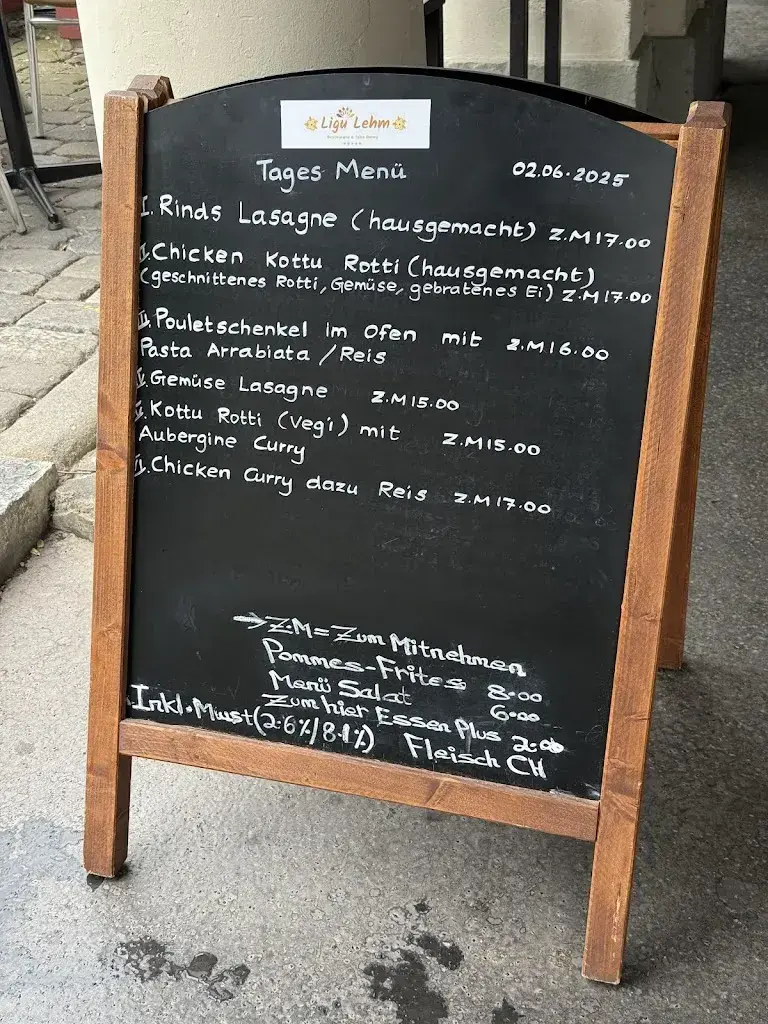 Ligu Lehm
Tages Menü 02.06.2025
I. Rinds Lasagne (hausgemacht) Z.M 17.00
II. Chicken Kottu Rotti (hausgemacht)
(geschnittenes Rotti, Gemüse, gebratenes Ei) Z.M 17.00
III. Pouletschenkel im Ofen mit Z.M 16.00
Pasta Arrabiata / Reis
IV. Gemüse Lasagne Z.M 15.00
V. Kottu Rotti (Vegi) mit Z.M 15.00
Aubergine Curry
VI. Chicken Curry dazu Reis Z.M 17.00
→ Z.M = Zum Mitnehmen
Pommes-Frites 8.00
Menü Salat 6.00
Zum hier Essen Plus 2.00
Inkl. Mwst (2.6%/8.1%) Fleisch CH